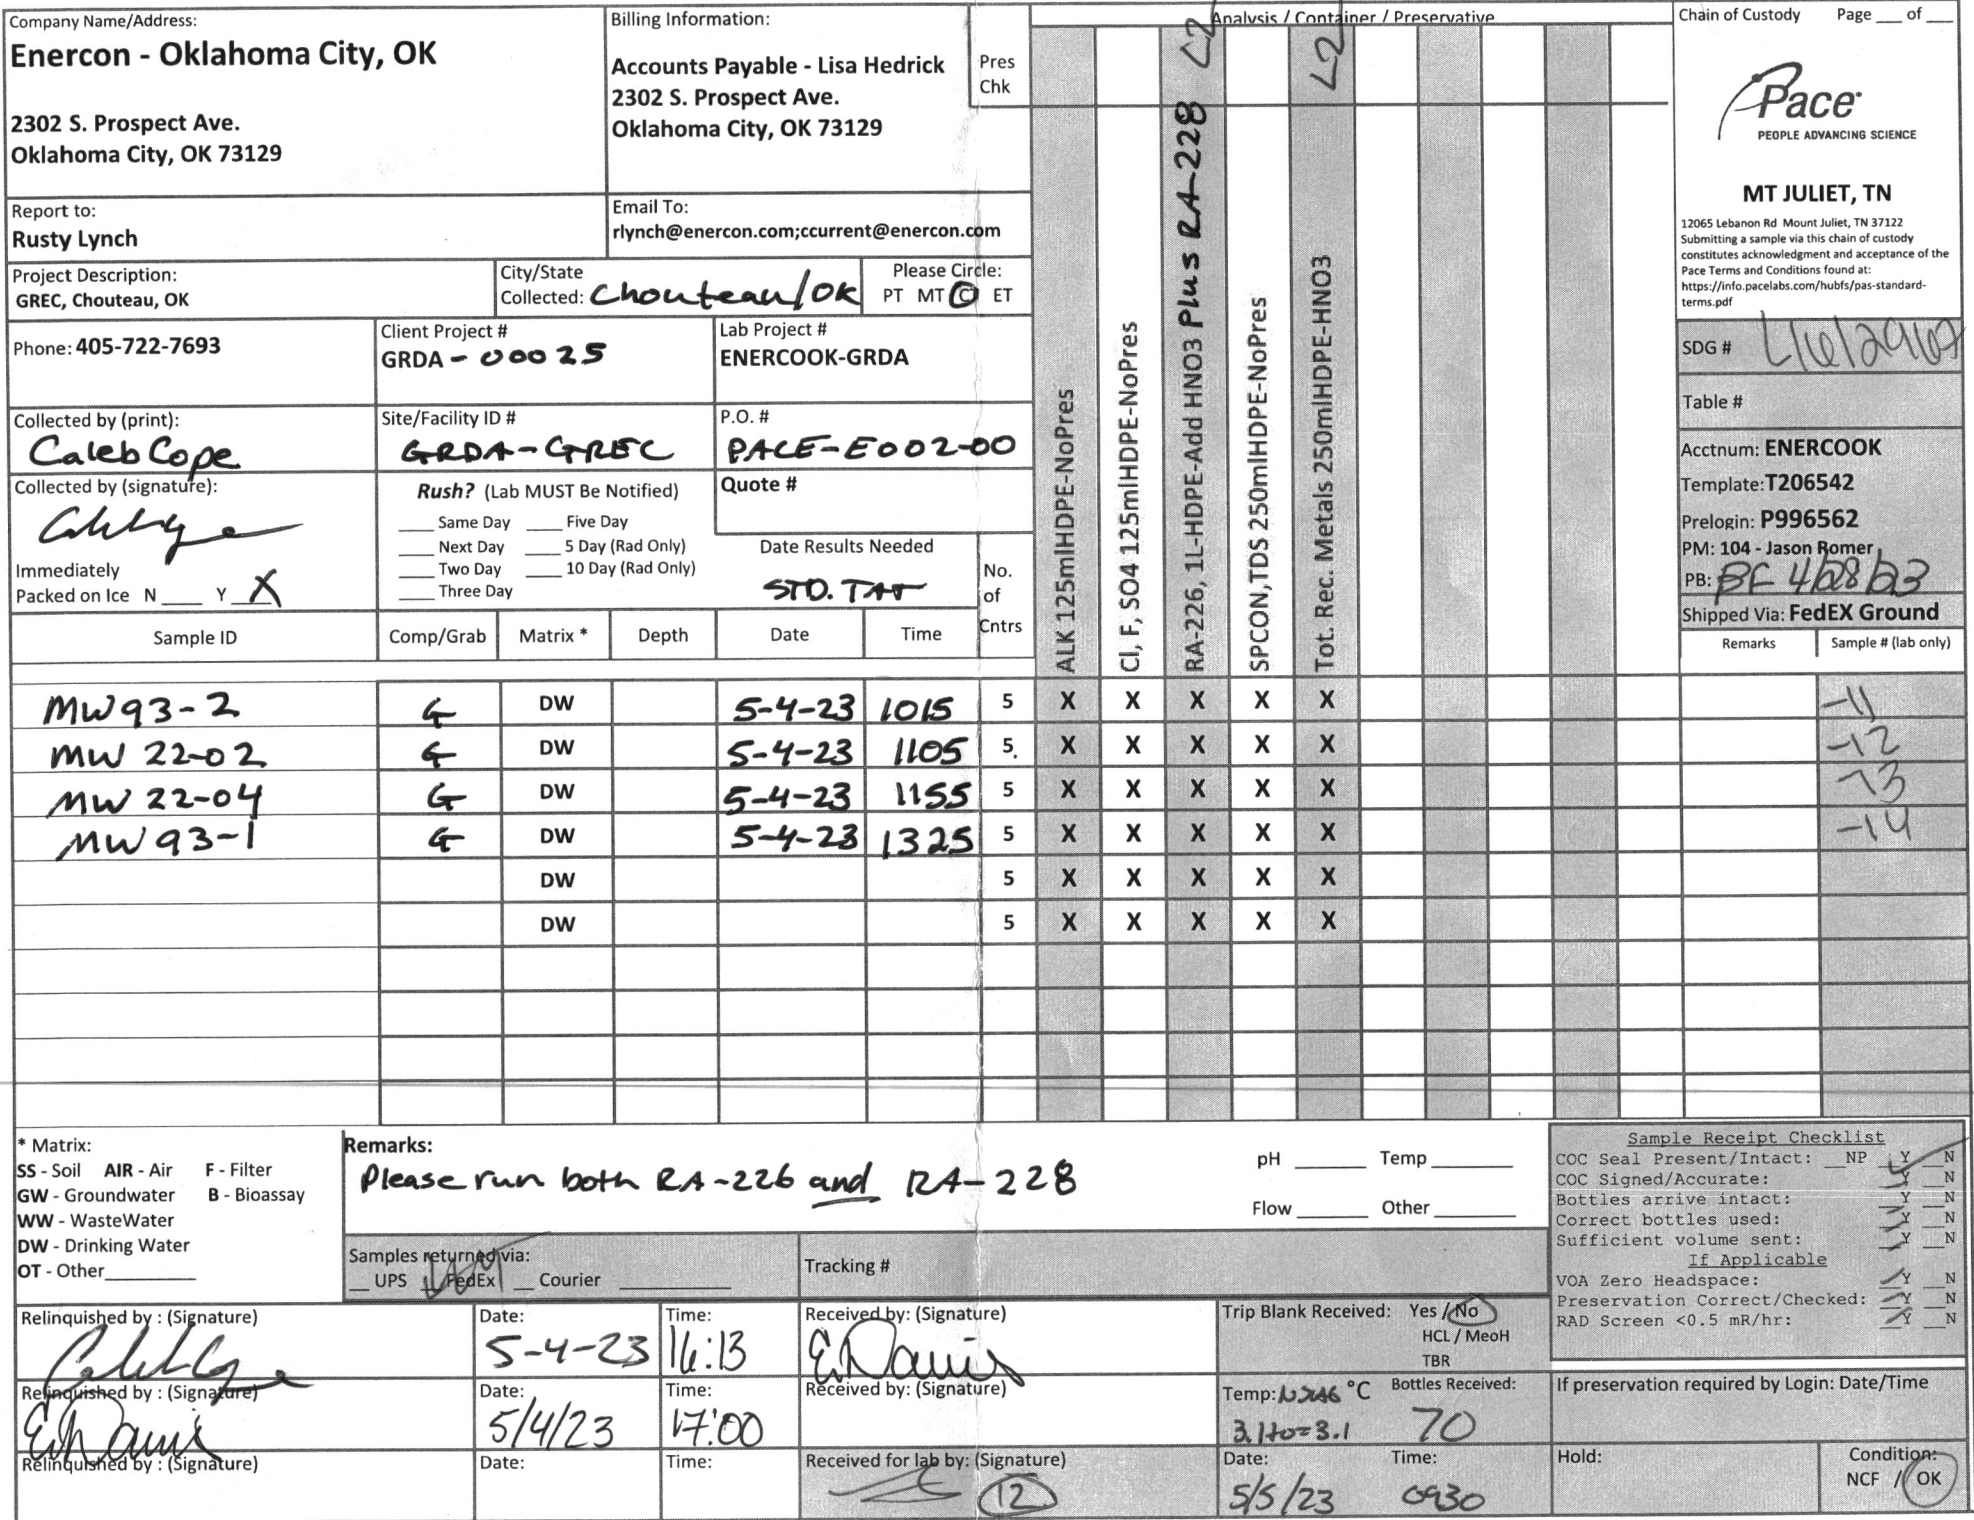 Company Name/Address:
Enercon - Oklahoma City, OK
2302 S. Prospect Ave.
Oklahoma City, OK 73129
Billing Information:
Accounts Payable - Lisa Hedrick
2302 S. Prospect Ave.
Oklahoma City, OK 73129
Pres
Chk
Analysis / Container / Preservative
Chain of Custody Page ___ of ___
Pace
PEOPLE ADVANCING SCIENCE
MT JULIET, TN
12065 Lebanon Rd Mount Juliet, TN 37122
Submitting a sample via this chain of custody
constitutes acknowledgment and acceptance of the
Pace Terms and Conditions found at:
https://info.pacelabs.com/hubfs/pas-standard-
terms.pdf
Report to:
Rusty Lynch
Email To:
rlynch@enercon.com;ccurrent@enercon.com
Project Description:
GREC, Chouteau, OK
City/State
Collected: Chouteau/OK
Please Circle:
PT MT CT ET
Phone: 405-722-7693
Client Project #
GRDA-00025
Lab Project #
ENERCOOK-GRDA
Collected by (print):
Caleb Cope
Site/Facility ID #
GRDA-GREC
P.O. #
PACE-E002-00
Collected by (signature):
Rush? (Lab MUST Be Notified)
___ Same Day ___ Five Day
___ Next Day ___ 5 Day (Rad Only)
___ Two Day ___ 10 Day (Rad Only)
___ Three Day
Quote #
Date Results Needed
STD. TAT
Immediately
Packed on Ice N ___ Y X
No.
of
Cntrs
ALK 125mlHDPE-NoPres
Cl, F, SO4 125mlHDPE-NoPres
RA-226, 1L-HDPE-Add HNO3 Plus RA-228 L2
SPCON,TDS 250mlHDPE-NoPres
Tot. Rec. Metals 250mlHDPE-HNO3 L2
SDG # L1612967
Table #
Acctnum: ENERCOOK
Template:T206542
Prelogin: P996562
PM: 104 - Jason Romer
PB: BF 4/28/23
Shipped Via: FedEX Ground
Sample ID Comp/Grab Matrix * Depth Date Time Remarks Sample # (lab only)
MW93-2 G DW 5-4-23 1015 5 X X X X X -11
MW 22-02 G DW 5-4-23 1105 5 X X X X X -12
MW 22-04 G DW 5-4-23 1155 5 X X X X X -13
MW 93-1 G DW 5-4-23 1325 5 X X X X X -14
DW 5 X X X X X
DW 5 X X X X X
* Matrix:
SS - Soil AIR - Air F - Filter
GW - Groundwater B - Bioassay
WW - WasteWater
DW - Drinking Water
OT - Other___
Remarks:
Please run both RA-226 and RA-228
pH ___ Temp ___
Flow ___ Other ___
Samples returned via:
__ UPS __ FedEx __ Courier ___
Tracking #
Sample Receipt Checklist
COC Seal Present/Intact: __NP __Y __N
COC Signed/Accurate: __Y __N
Bottles arrive intact: __Y __N
Correct bottles used: __Y __N
Sufficient volume sent: __Y __N
If Applicable
VOA Zero Headspace: __Y __N
Preservation Correct/Checked: __Y __N
RAD Screen <0.5 mR/hr: __Y __N
Relinquished by : (Signature)
Date:
5-4-23
Time:
16:13
Received by: (Signature)
E. Davis
Trip Blank Received: Yes / No
HCL / MeoH
TBR
Relinquished by : (Signature)
Date:
5/4/23
Time:
17:00
Received by: (Signature)
Temp: °C
3.1+0=3.1
Bottles Received:
70
If preservation required by Login: Date/Time
Relinquished by : (Signature)
Date:
Time:
Received for lab by: (Signature)
12
Date:
5/5/23
Time:
0930
Hold:
Condition:
NCF / OK